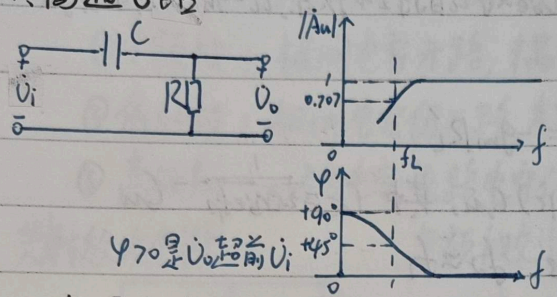 C
U̇i
R
U̇o
|Ȧu|
1
0.707
0
fL
f
φ
+90°
+45°
φ>0是U̇o超前U̇i
0
f